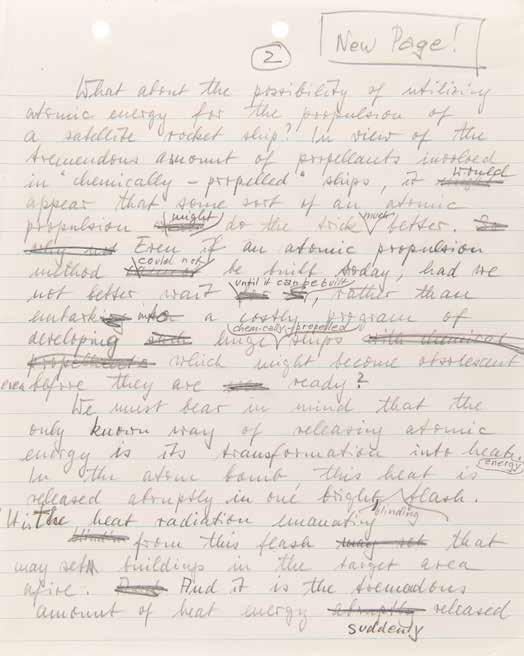 2
New Page!
What about the possibility of utilizing
atomic energy for the propulsion of
a satellite rocket ship? In view of the
tremendous amount of propellants involved
in "chemically-propelled" ships, it would
appear that some sort of an atomic
propulsion might do the trick much better. So
why not Even if an atomic propulsion
method could not be built today, had we
not better wait until it can be built, rather than
embark into a costly program of
developing such huge chemically-propelled ships with chemical
propellants which might become obsolescent
even before they are ready?
We must bear in mind that the
only known way of releasing atomic
energy is its transformation into heat.
In the atom bomb, this heat energy is
released abruptly in one bright, blinding flash.
It is the heat radiation emanating
from this flash may set that
may set buildings in the target area
afire. And it is the tremendous
amount of heat energy abruptly released
suddenly